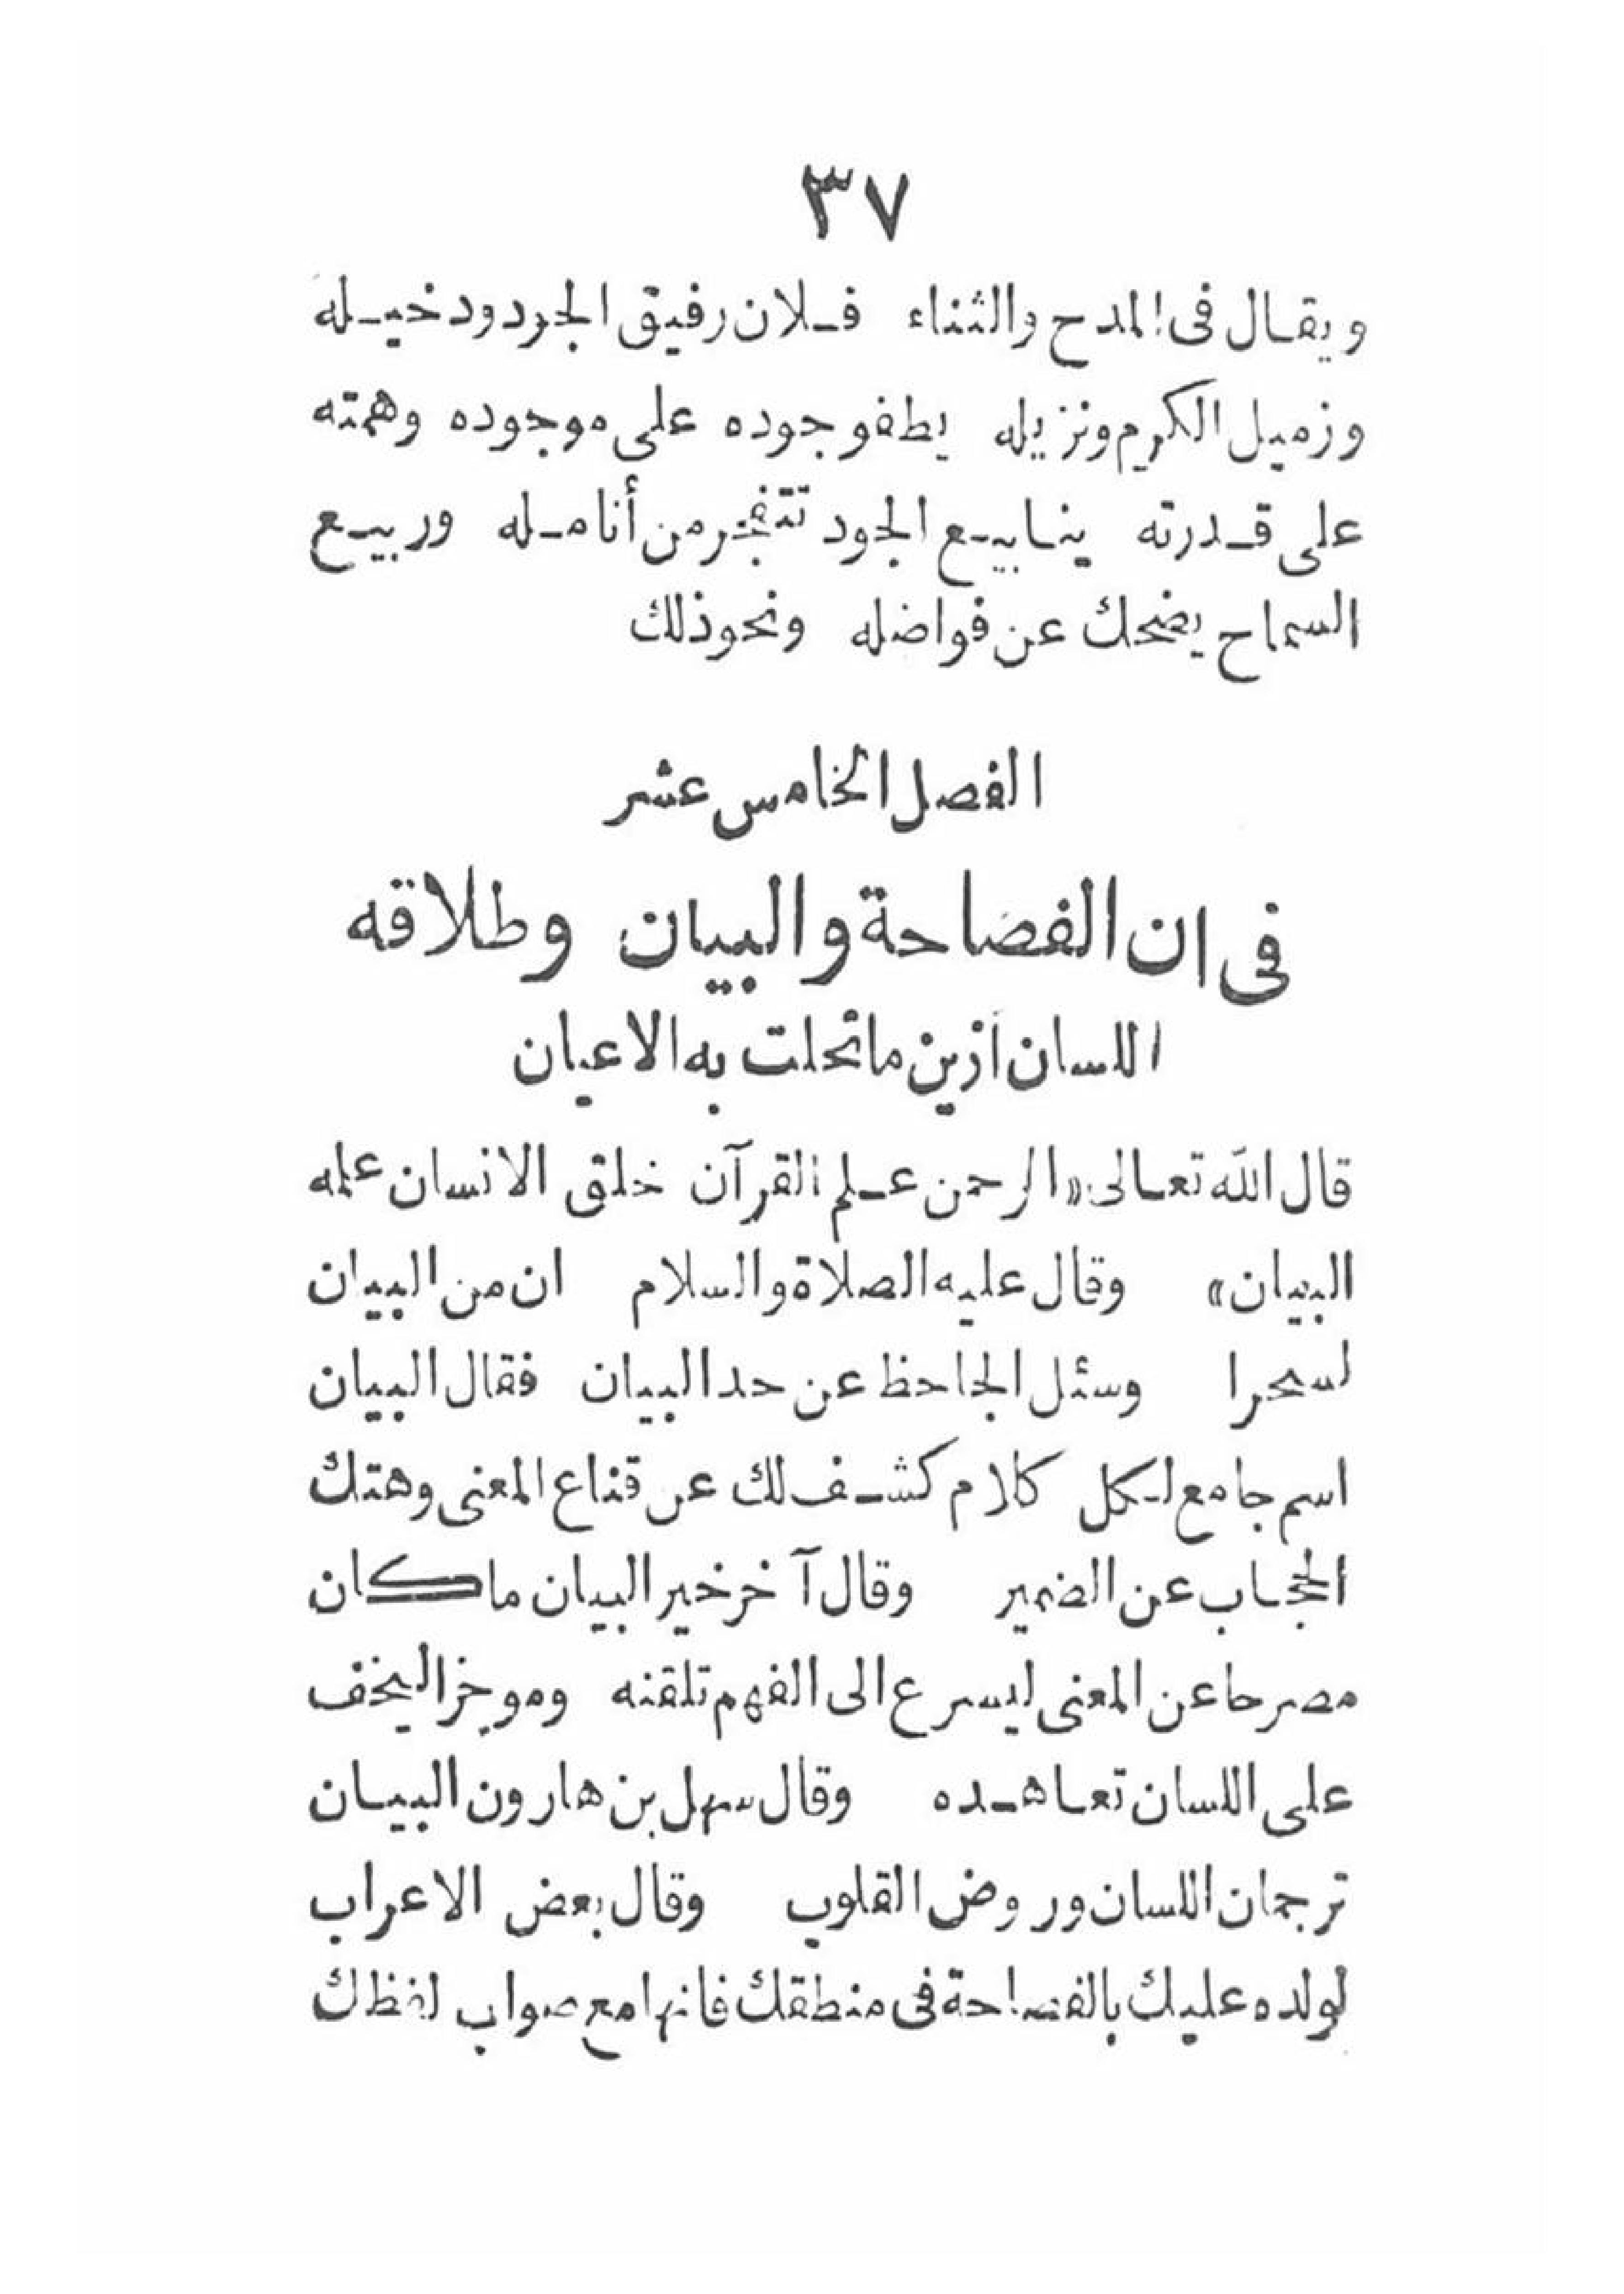 ٣٧
ويقال فى المدح والثناء فلان رفيق الجود ودخيله
وزميل الكرم ونزيله يطفو جوده على موجوده وهمته
على قدرته ينابيع الجود تتفجر من أنامله وربيع
السماح يضحك عن فواضله ونحو ذلك
الفصل الخامس عشر
فى ان الفصاحة والبيان وطلاقه
اللسان أزين ما تحلت به الاعيان
قال الله تعالى «الرحمن علم القرآن خلق الانسان علمه
البيان» وقال عليه الصلاة والسلام ان من البيان
لسحرا وسئل الجاحظ عن حد البيان فقال البيان
اسم جامع لكل كلام كشف لك عن قناع المعنى وهتك
الحجاب عن الضمير وقال آخر خير البيان ما كان
مصرحا عن المعنى ليسرع الى الفهم تلقنه وموجزا ليخف
على اللسان تعاهده وقال سهل بن هارون البيان
ترجمان اللسان وروض القلوب وقال بعض الاعراب
لولده عليك بالفصاحة فى منطقك فانها مع صواب لفظك